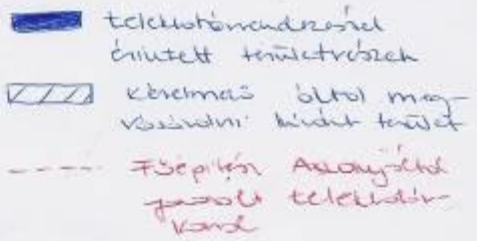 telekhatárrendezéssel
érintett területrészek
kérelmező által meg-
vásárolni kívánt terület
Főépítész által
javasolt telekhatár
vonal